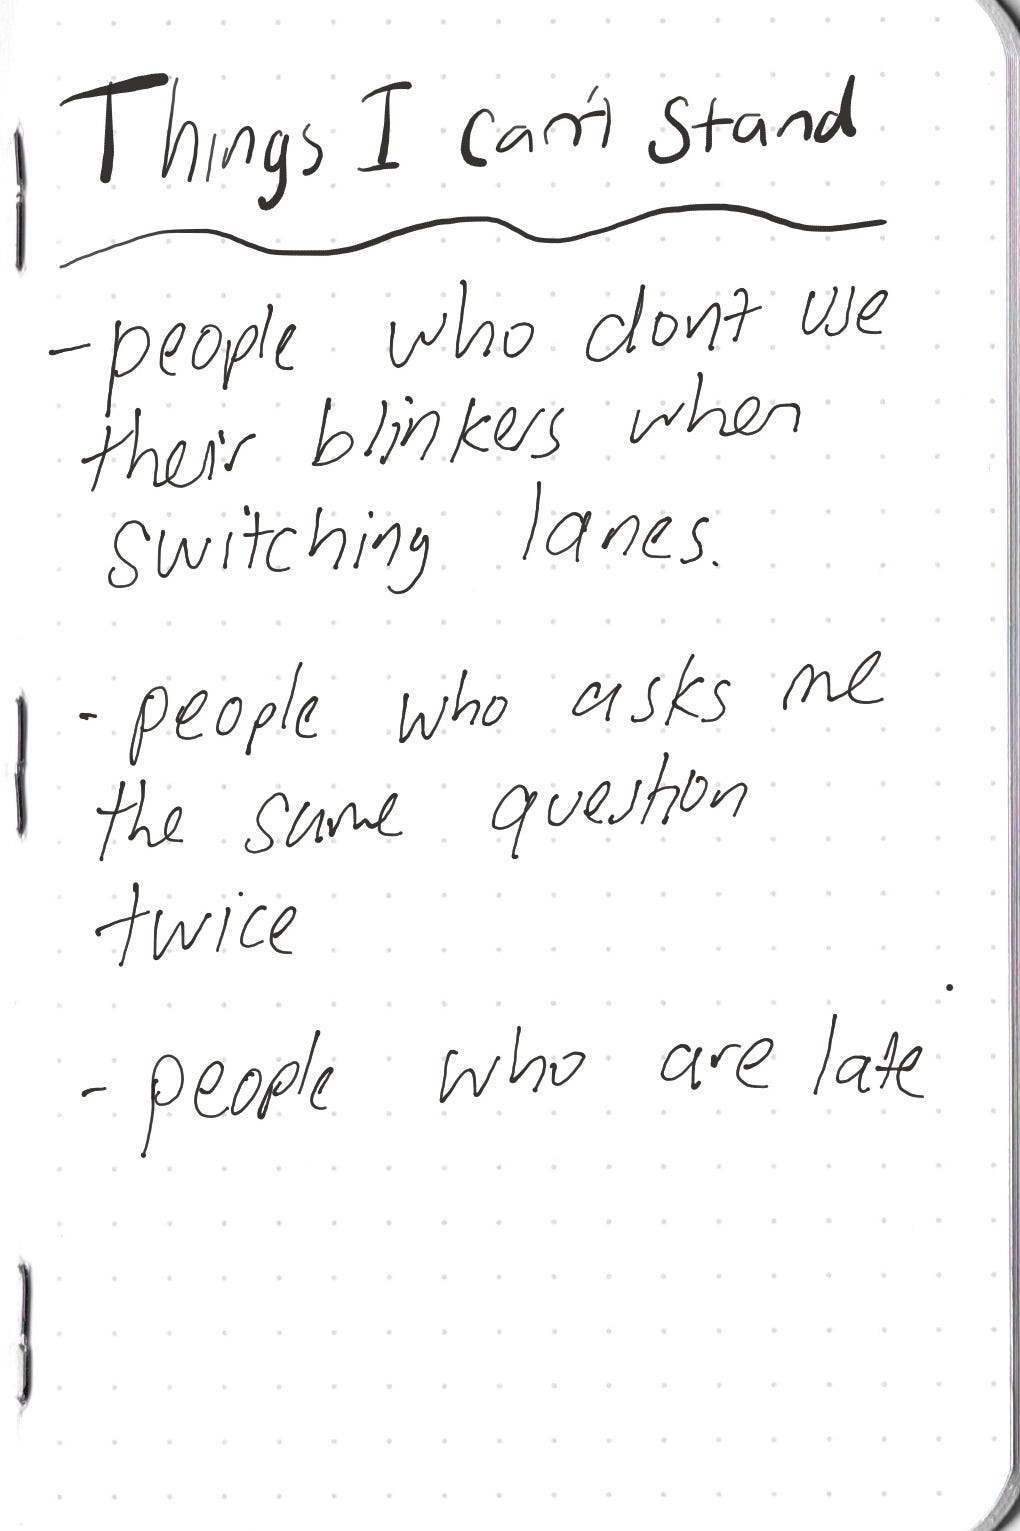 Things I can't stand
- people who dont use
their blinkers when
switching lanes.
- people who asks me
the same question
twice
- people who are late